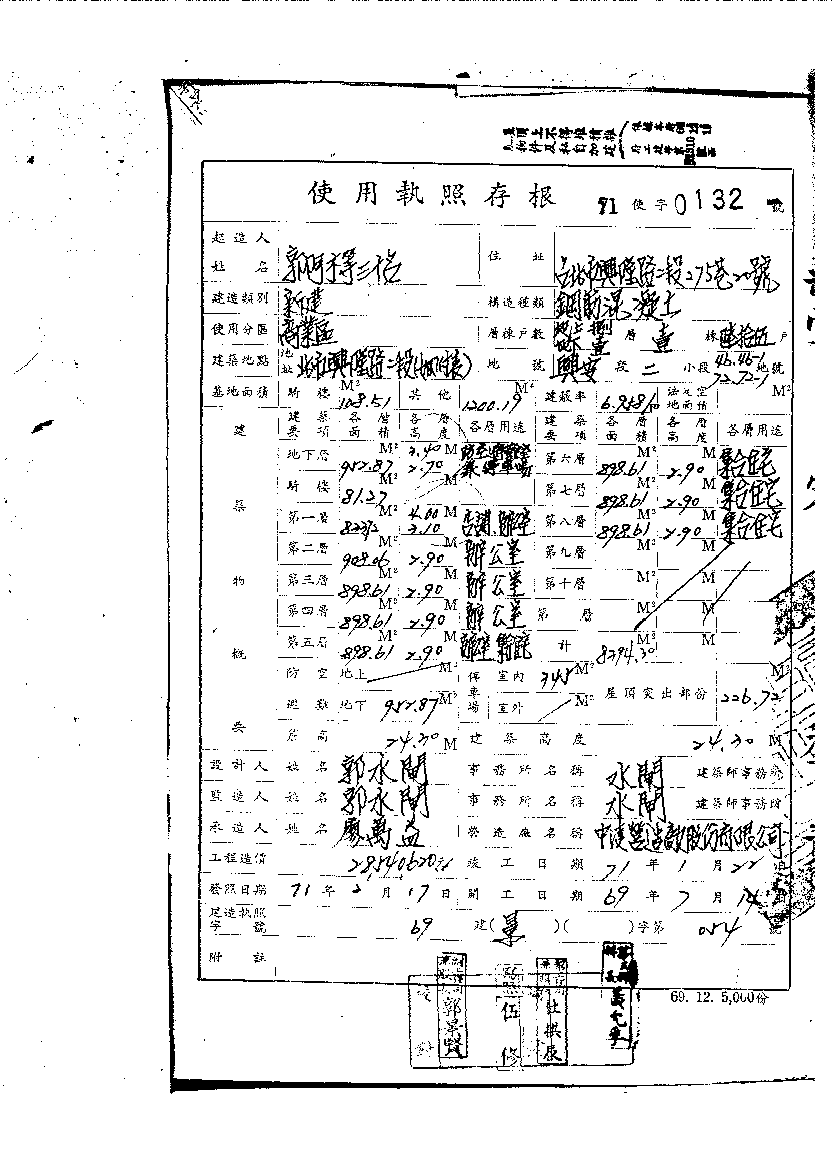 使用執照存根 71 使字0132 號
起造人
姓名 郭阿 等三名 住址 台北市興隆路二段275巷20號
建造類別 新建 構造種類 鋼筋混凝土
使用分區 商業區 層棟戶數 地上捌 層 壹 棟 陸拾伍 戶
建築地點 地址 北市興隆路二段(如附表) 地號 興安 段 二 小段 46.46-1 72.72-1 地號
基地面積 騎樓 108.51 M² 其他 1200.19 M² 建蔽率 法定空地面積 M²
建築要項 各層面積 各層高度 各層用途 建築要項 各層面積 各層高度 各層用途
地下層 952.87 M² 2.70 M 第六層 898.61 M² 2.90 M 集合住宅
騎樓 81.27 第七層 898.61 M² 2.90 M 集合住宅
第一層 M² 4.00 3.10 M 第八層 898.61 M² 2.90 M 集合住宅
第二層 908.06 M² 2.90 M 辦公室 第九層 M² M
第三層 898.61 M² 2.90 M 辦公室 第十層 M² M
第四層 898.61 M² 2.90 M 辦公室 第 層 M² M
第五層 898.61 M² 2.90 M 計 8294.30 M² M
防空 地上 M² 停車場 室內 345 M² 屋頂突出部份 226.72
避難 地下 952.87 M² 室外 M²
簷高 24.30 M 建築高度 24.30 M
設計人 姓名 郭水閘 事務所名稱 水閘 建築師事務所
監造人 姓名 郭水閘 事務所名稱 水閘 建築師事務所
承造人 姓名 廖萬益 營造廠名稱 股份有限公司
工程造價 竣工日期 71 年 1 月 22 日
發照日期 71 年 2 月 17 日 開工日期 69 年 7 月 14
建造執照字號 69 建( )( )字第 054 號
附註
69. 12. 5,000份